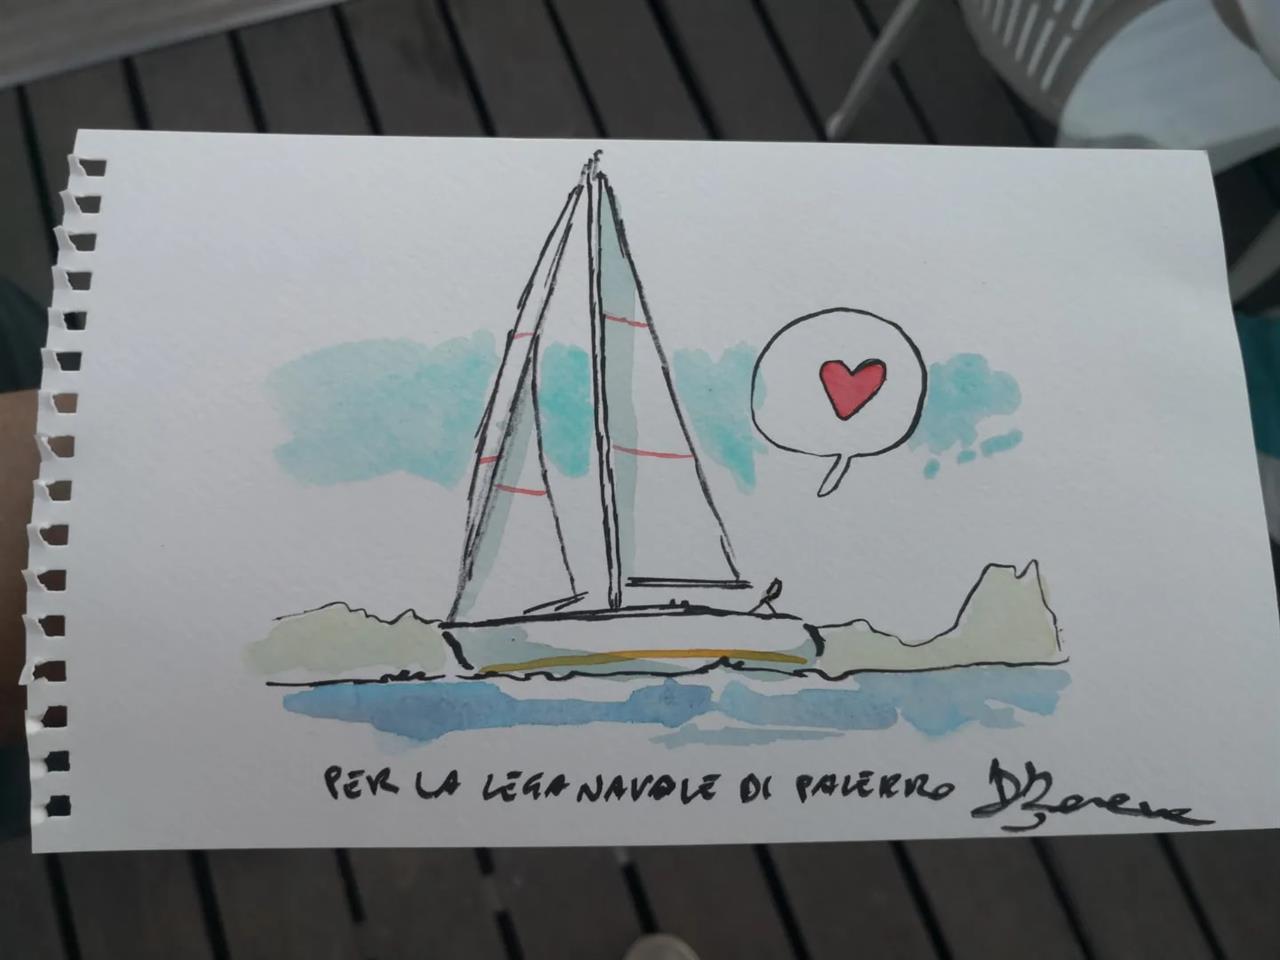 PER LA LEGA NAVALE DI PALERMO